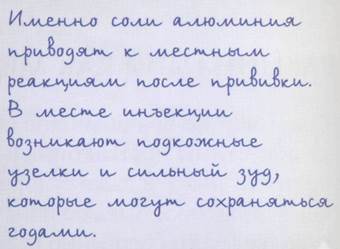 Именно соли алюминия
приводят к местным
реакциям после прививки.
В месте инъекции
возникают подкожные
узелки и сильный зуд,
которые могут сохраняться
годами.